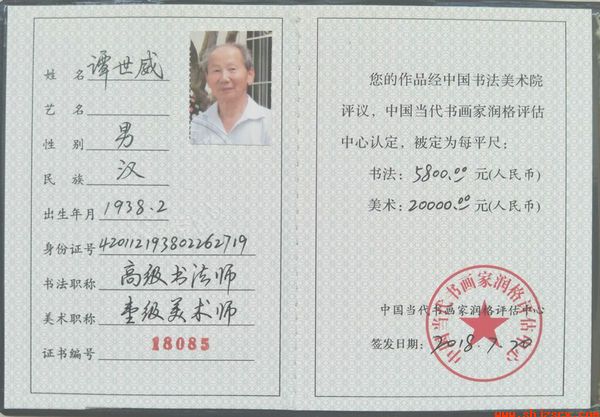 姓 名 谭世威
艺 名
性 别 男
民 族 汉
出生年月 1938.2
身份证号 420112193802262719
书法职称 高级书法师
美术职称 壹级美术师
证书编号 18085
您的作品经中国书法美术院
评议，中国当代书画家润格评估
中心认定，被定为每平尺：
书法：5800.00 元(人民币)
美术：20000.00 元(人民币)
中国当代书画家润格评估中心
签发日期：2018.7.20
中国当代书画家润格评估中心